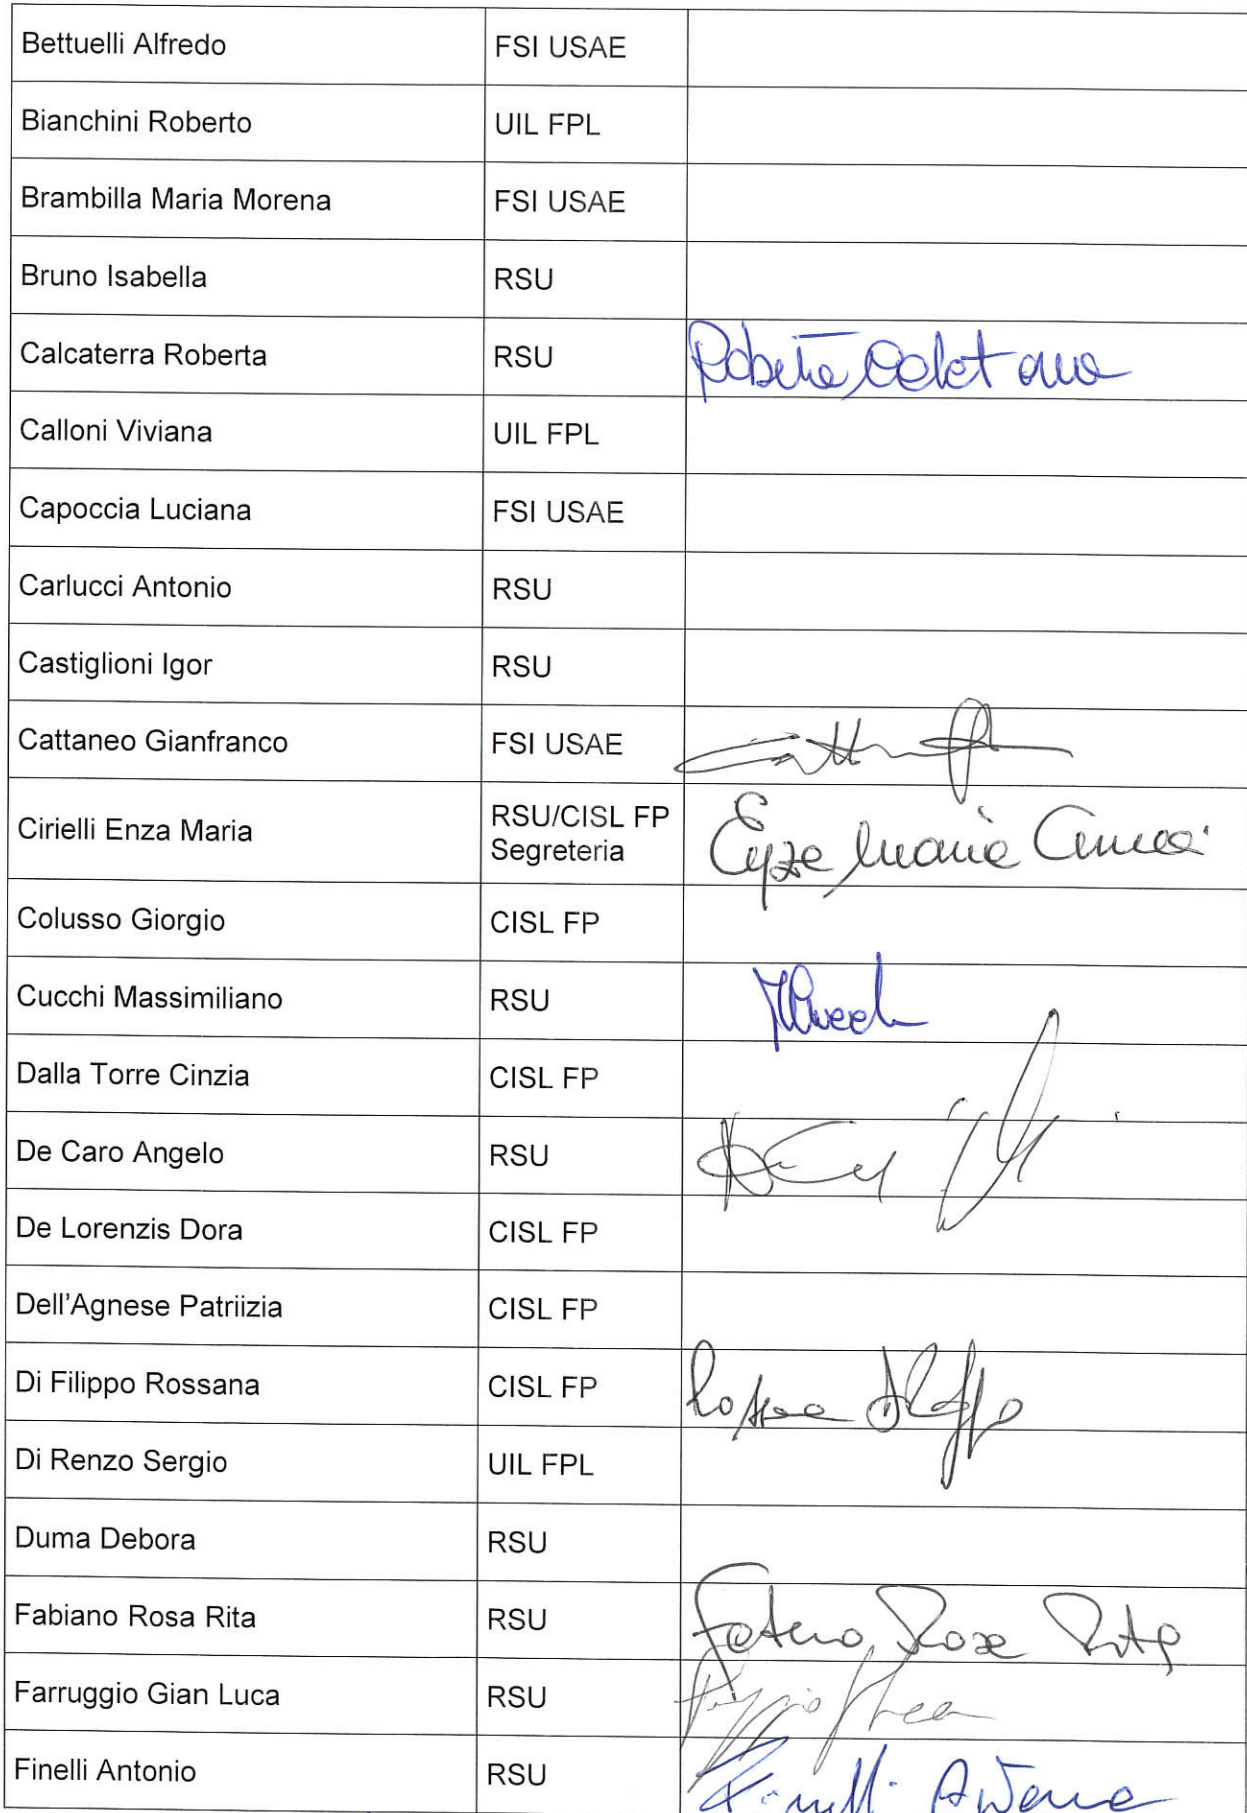 Bettuelli Alfredo FSI USAE
Bianchini Roberto UIL FPL
Brambilla Maria Morena FSI USAE
Bruno Isabella RSU
Calcaterra Roberta RSU
Calloni Viviana UIL FPL
Capoccia Luciana FSI USAE
Carlucci Antonio RSU
Castiglioni Igor RSU
Cattaneo Gianfranco FSI USAE
Cirielli Enza Maria RSU/CISL FP
Segreteria
Colusso Giorgio CISL FP
Cucchi Massimiliano RSU
Dalla Torre Cinzia CISL FP
De Caro Angelo RSU
De Lorenzis Dora CISL FP
Dell'Agnese Patriizia CISL FP
Di Filippo Rossana CISL FP
Di Renzo Sergio UIL FPL
Duma Debora RSU
Fabiano Rosa Rita RSU
Farruggio Gian Luca RSU
Finelli Antonio RSU